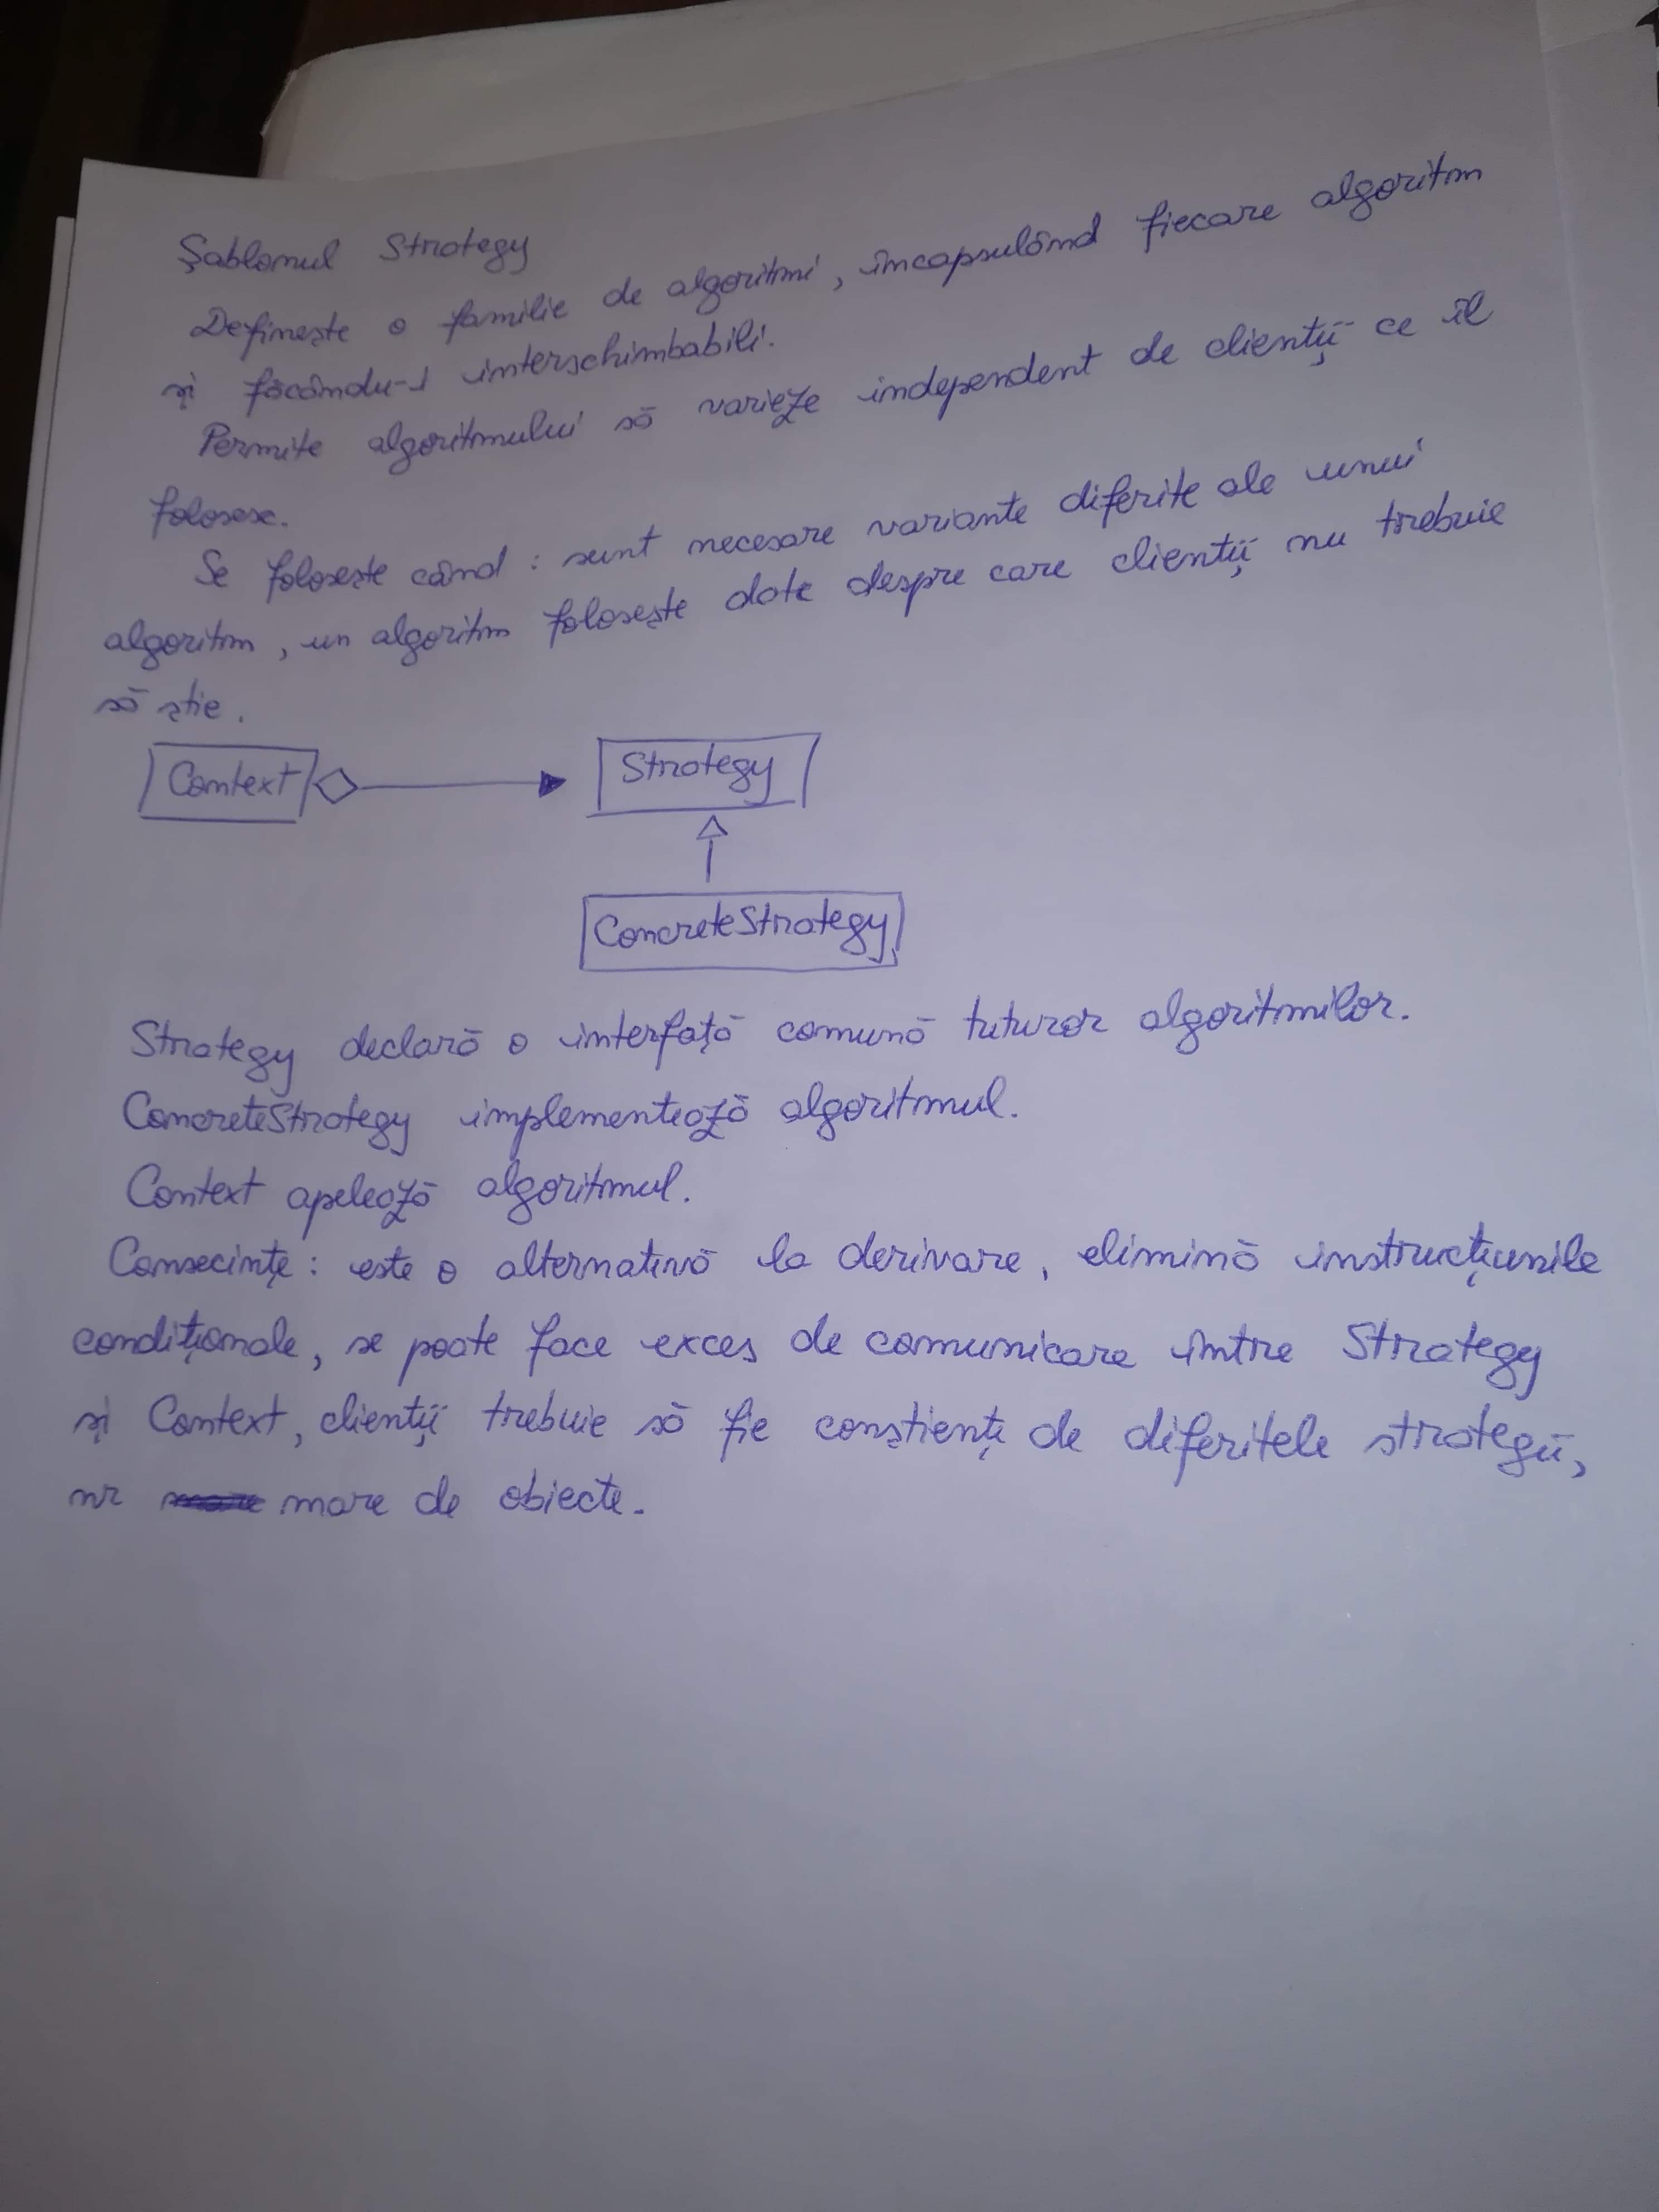 Șablonul Strategy
Definește o familie de algoritmi, încapsulând fiecare algoritm
și făcându-i interschimbabili.
Permite algoritmului să varieze independent de clienții ce îl
folosesc.
Se folosește când: sunt necesare variante diferite ale unui
algoritm, un algoritm folosește date despre care clienții nu trebuie
să știe.
Context Strategy
ConcreteStrategy
Strategy declară o interfață comună tuturor algoritmilor.
ConcreteStrategy implementează algoritmul.
Context apelează algoritmul.
Consecințe: este o alternativă la derivare, elimină instrucțiunile
condiționale, se poate face exces de comunicare între Strategy
și Context, clienții trebuie să fie conștienți de diferitele strategii,
nr mare de obiecte.